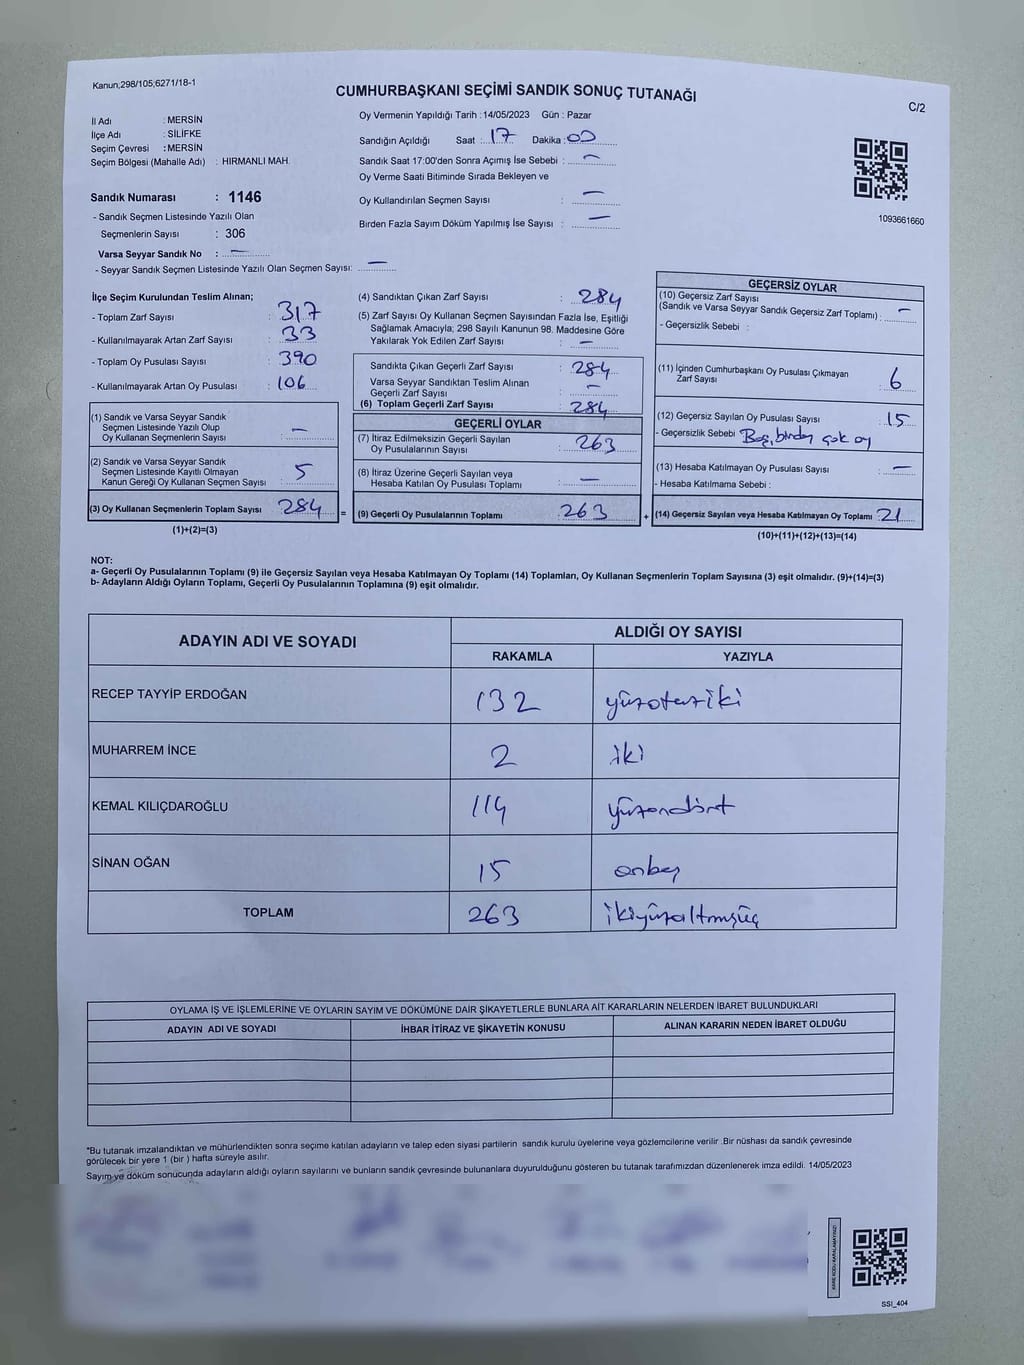 Kanun;298/105;6271/18-1
CUMHURBAŞKANI SEÇİMİ SANDIK SONUÇ TUTANAĞI
C/2
İl Adı : MERSİN
İlçe Adı : SİLİFKE
Seçim Çevresi : MERSİN
Seçim Bölgesi (Mahalle Adı) : HIRMANLI MAH.
Sandık Numarası : 1146
- Sandık Seçmen Listesinde Yazılı Olan
Seçmenlerin Sayısı : 306
Varsa Seyyar Sandık No : —
- Seyyar Sandık Seçmen Listesinde Yazılı Olan Seçmen Sayısı: —
Oy Vermenin Yapıldığı Tarih : 14/05/2023 Gün : Pazar
Sandığın Açıldığı Saat : 17 Dakika : 00
Sandık Saat 17:00'den Sonra Açımış İse Sebebi : —
Oy Verme Saati Bitiminde Sırada Bekleyen ve
Oy Kullandırılan Seçmen Sayısı : —
Birden Fazla Sayım Döküm Yapılmış İse Sayısı : —
1093661660
İlçe Seçim Kurulundan Teslim Alınan;
- Toplam Zarf Sayısı : 317
- Kullanılmayarak Artan Zarf Sayısı : 33
- Toplam Oy Pusulası Sayısı : 390
- Kullanılmayarak Artan Oy Pusulası : 106
(1) Sandık ve Varsa Seyyar Sandık
Seçmen Listesinde Yazılı Olup
Oy Kullanan Seçmenlerin Sayısı : —
(2) Sandık ve Varsa Seyyar Sandık
Seçmen Listesinde Kayıtlı Olmayan
Kanun Gereği Oy Kullanan Seçmen Sayısı : 5
(3) Oy Kullanan Seçmenlerin Toplam Sayısı 284 =
(1)+(2)=(3)
(4) Sandıktan Çıkan Zarf Sayısı : 284
(5) Zarf Sayısı Oy Kullanan Seçmen Sayısından Fazla İse, Eşitliği
Sağlamak Amacıyla; 298 Sayılı Kanunun 98. Maddesine Göre
Yakılarak Yok Edilen Zarf Sayısı : —
Sandıkta Çıkan Geçerli Zarf Sayısı : 284
Varsa Seyyar Sandıktan Teslim Alınan
Geçerli Zarf Sayısı : —
(6) Toplam Geçerli Zarf Sayısı : 284
GEÇERLİ OYLAR
(7) İtiraz Edilmeksizin Geçerli Sayılan
Oy Pusulalarının Sayısı : 263
(8) İtiraz Üzerine Geçerli Sayılan veya
Hesaba Katılan Oy Pusulası Toplamı : —
(9) Geçerli Oy Pusulalarının Toplamı : 263 +
GEÇERSİZ OYLAR
(10) Geçersiz Zarf Sayısı
(Sandık ve Varsa Seyyar Sandık Geçersiz Zarf Toplamı) : —
- Geçersizlik Sebebi :
(11) İçinden Cumhurbaşkanı Oy Pusulası Çıkmayan
Zarf Sayısı : 6
(12) Geçersiz Sayılan Oy Pusulası Sayısı : 15
- Geçersizlik Sebebi : Boş, birden çok oy
(13) Hesaba Katılmayan Oy Pusulası Sayısı : —
- Hesaba Katılmama Sebebi :
(14) Geçersiz Sayılan veya Hesaba Katılmayan Oy Toplamı : 21
(10)+(11)+(12)+(13)=(14)
NOT:
a- Geçerli Oy Pusulalarının Toplamı (9) ile Geçersiz Sayılan veya Hesaba Katılmayan Oy Toplamı (14) Toplamları, Oy Kullanan Seçmenlerin Toplam Sayısına (3) eşit olmalıdır. (9)+(14)=(3)
b- Adayların Aldığı Oyların Toplamı, Geçerli Oy Pusulalarının Toplamına (9) eşit olmalıdır.
ADAYIN ADI VE SOYADI ALDIĞI OY SAYISI
RAKAMLA YAZIYLA
RECEP TAYYİP ERDOĞAN 132 yüzotuziki
MUHARREM İNCE 2 iki
KEMAL KILIÇDAROĞLU 114 yüzondört
SİNAN OĞAN 15 onbeş
TOPLAM 263 ikiyüzaltmışüç
OYLAMA İŞ VE İŞLEMLERİNE VE OYLARIN SAYIM VE DÖKÜMÜNE DAİR ŞİKAYETLERLE BUNLARA AİT KARARLARIN NELERDEN İBARET BULUNDUKLARI
ADAYIN ADI VE SOYADI İHBAR İTİRAZ VE ŞİKAYETİN KONUSU ALINAN KARARIN NEDEN İBARET OLDUĞU
*Bu tutanak imzalandıktan ve mühürlendikten sonra seçime katılan adayların ve talep eden siyasi partilerin sandık kurulu üyelerine veya gözlemcilerine verilir .Bir nüshası da sandık çevresinde
görülecek bir yere 1 (bir ) hafta süreyle asılır.
Sayım ve döküm sonucunda adayların aldığı oyların sayılarını ve bunların sandık çevresinde bulunanlara duyurulduğunu gösteren bu tutanak tarafımızdan düzenlenerek imza edildi. 14/05/2023
KARE KODU KARALAMAYINIZ!
SSI_404